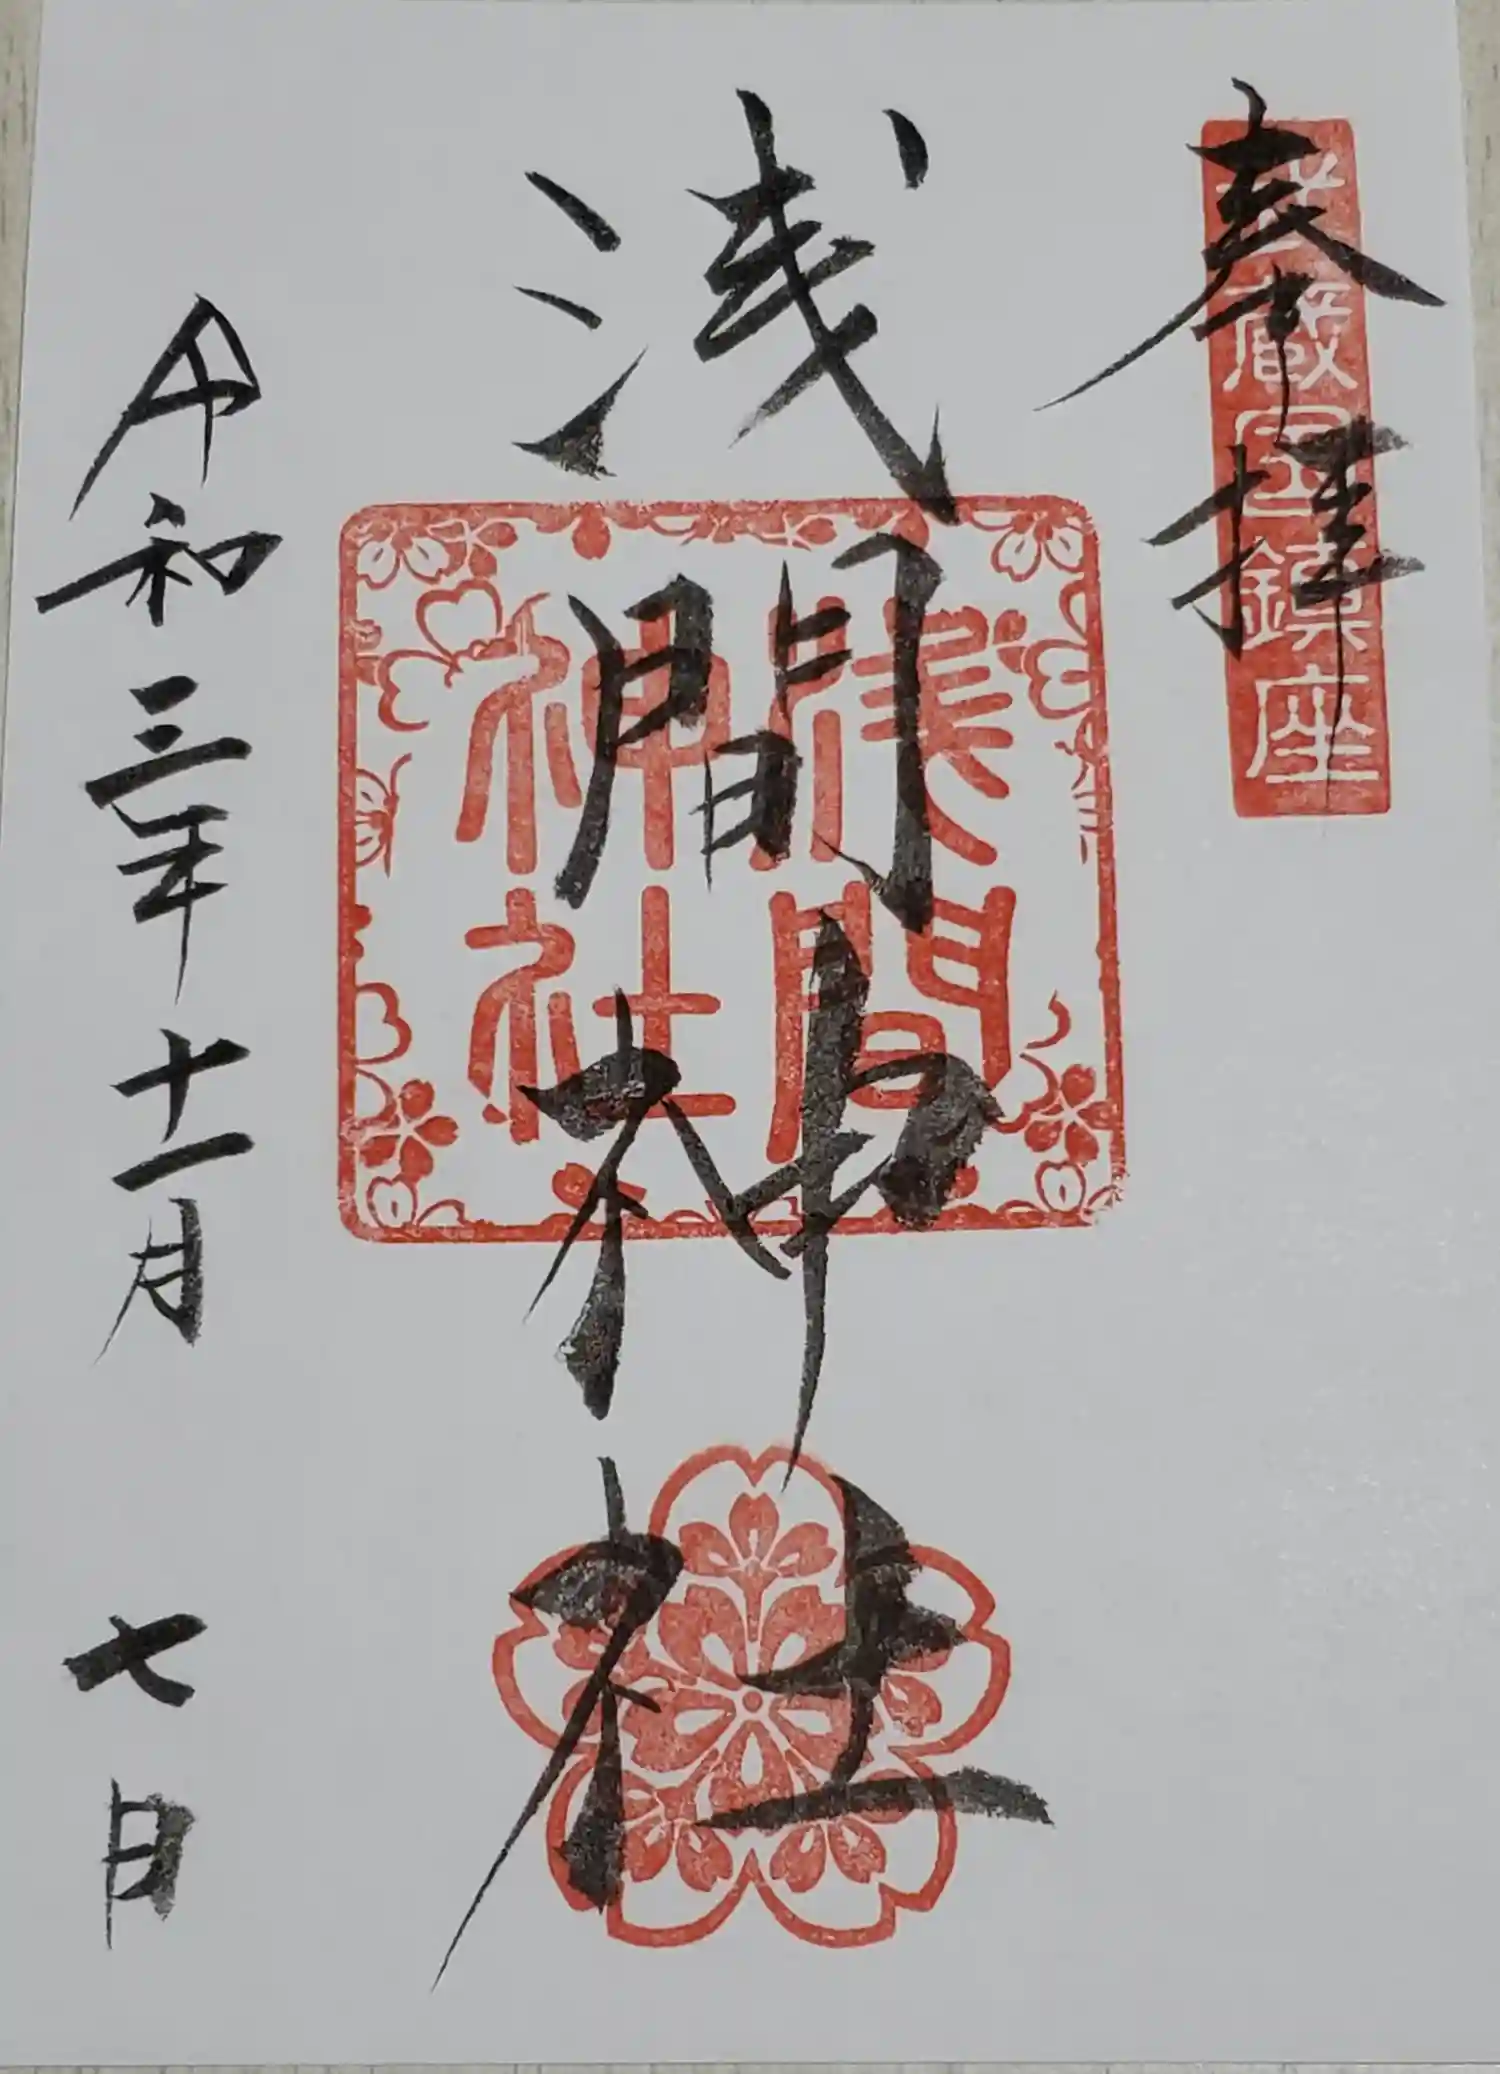 奉拝
武蔵国鎮座
浅間神社
浅間
神社
令和三年十一月七日